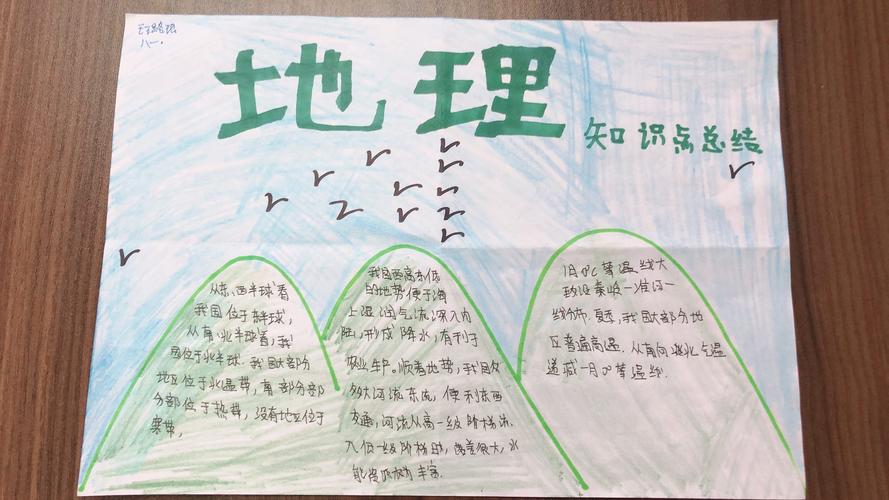 八一.
地理
知识点总结
从东、西半球看
我国位于东半球,
从南、北半球看,我
国位于北半球.我国大部分
地区位于北温带,南部分部
分部位于热带,没有地区位于
寒带,
我国西高东低
的地势便于海
上湿润气流深入内
陆,形成降水,有利于
农业生产.顺着地势,我国
大河流东流,便利东西
交通,河流从高一级阶梯流
入低一级阶梯时,落差很大,水
能资源丰富.
1月0℃等温线大
致沿秦岭—淮河一
线分布.夏季,我国大部分地
区普遍高温.从南向北气温
递减一月0℃等温线